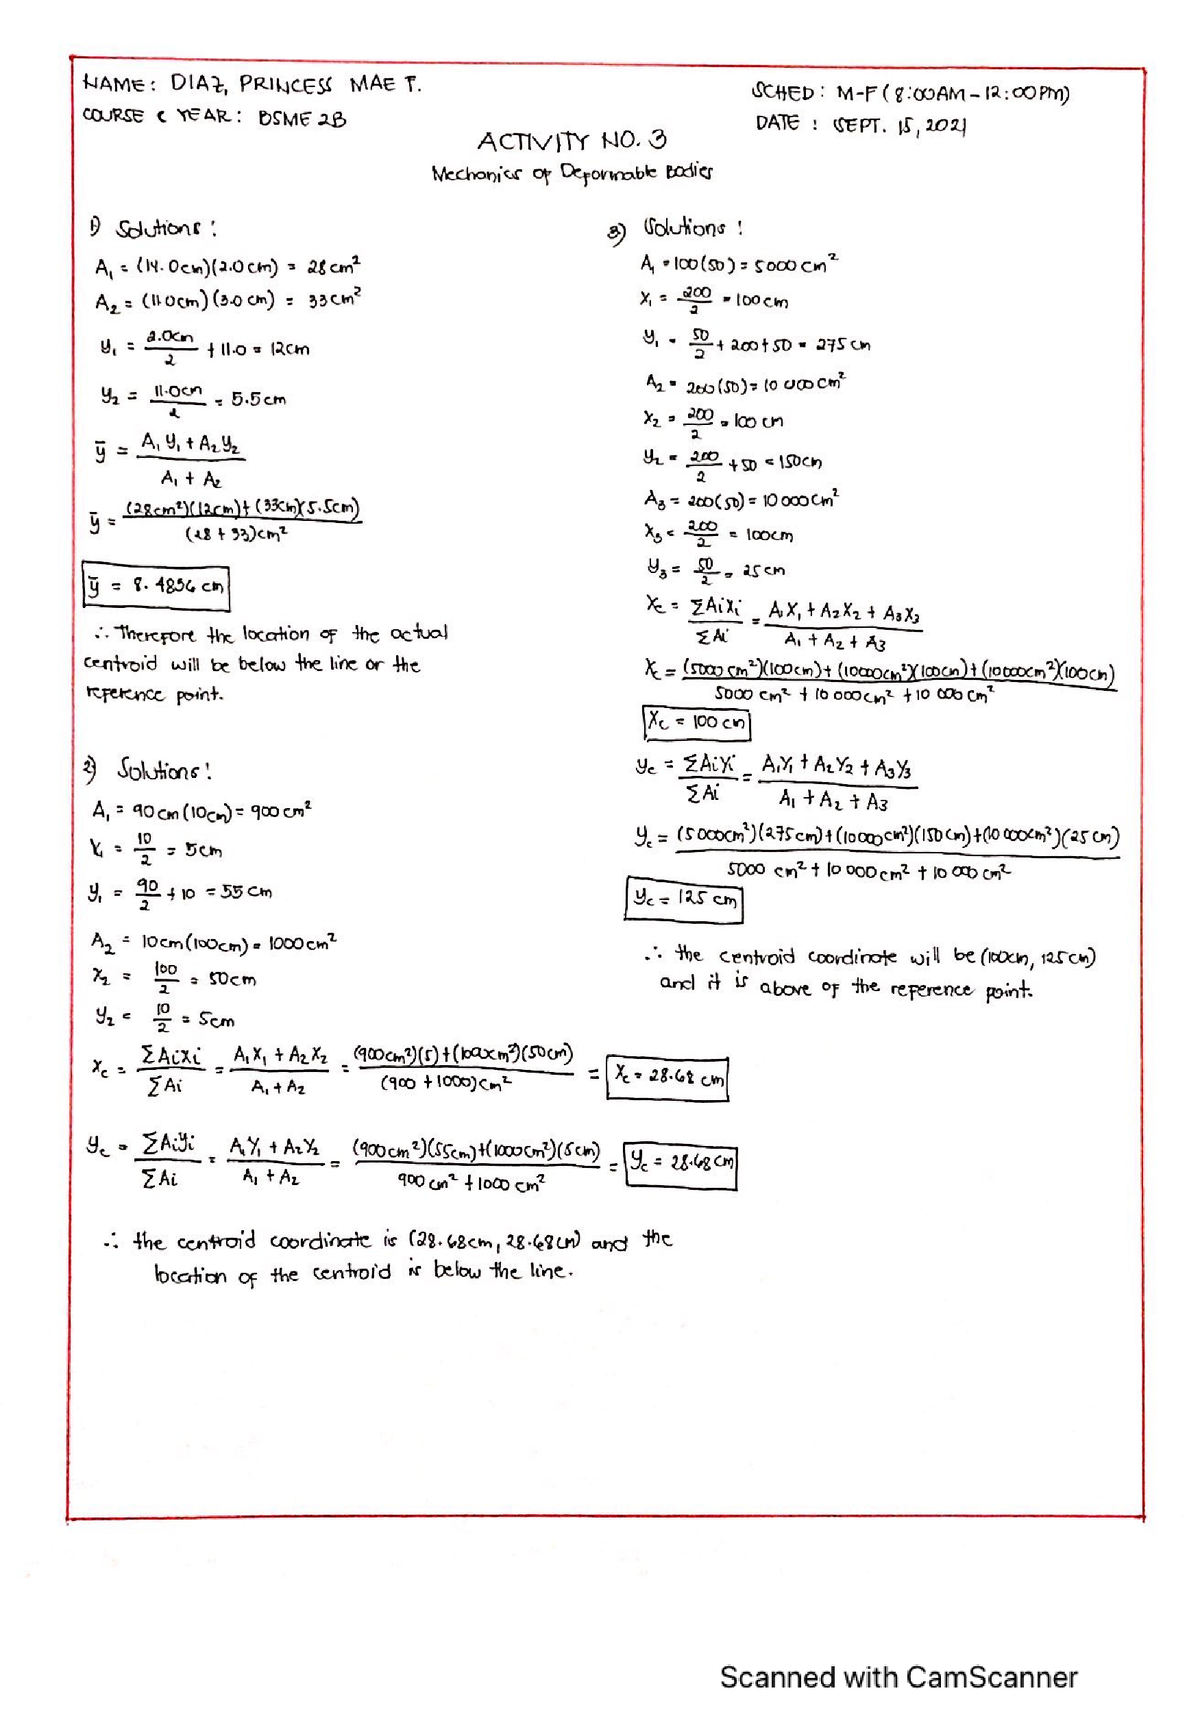 NAME: DIAZ, PRINCESS MAE T.
COURSE & YEAR: BSME 2B
SCHED: M-F (8:00AM-12:00PM)
DATE: SEPT. 15, 2021
ACTIVITY NO. 3
Mechanics of Deformable Bodies
1) Solutions:
A₁ = (14.0cm)(2.0cm) = 28cm²
A₂ = (11.0cm)(3.0cm) = 33cm²
y₁ = 2.0cm/2 + 11.0 = 12cm
y₂ = 11.0cm/2 = 5.5cm
ȳ = A₁y₁ + A₂y₂ / A₁ + A₂
ȳ = (28cm²)(12cm) + (33cm)(5.5cm) / (28 + 33)cm²
ȳ = 8.4836 cm
∴ Therefore the location of the actual
centroid will be below the line or the
reference point.
2) Solutions:
A₁ = 90cm(10cm) = 900cm²
X₁ = 10/2 = 5cm
y₁ = 90/2 + 10 = 55cm
A₂ = 10cm(100cm) = 1000cm²
X₂ = 100/2 = 50cm
y₂ = 10/2 = 5cm
Xc = ΣAiXi/ΣAi = A₁X₁ + A₂X₂ / A₁ + A₂ = (900cm²)(5) + (1000cm²)(50cm) / (900 + 1000)cm² = Xc = 28.68 cm
yc = ΣAiyi/ΣAi = A₁Y₁ + A₂Y₂ / A₁ + A₂ = (900cm²)(55cm) + (1000cm²)(5cm) / 900 cm² + 1000 cm² = yc = 28.68cm
∴ the centroid coordinate is (28.68cm, 28.68cm) and the
location of the centroid is below the line.
3) Solutions:
A₁ = 100(50) = 5000cm²
X₁ = 200/2 = 100cm
y₁ = 50/2 + 200 + 50 = 275cm
A₂ = 200(50) = 10 000cm²
X₂ = 200/2 = 100 cm
y₂ = 200/2 + 50 = 150cm
A₃ = 200(50) = 10 000cm²
X₃ = 200/2 = 100cm
y₃ = 50/2 = 25cm
Xc = ΣAiXi/ΣAi = A₁X₁ + A₂X₂ + A₃X₃ / A₁ + A₂ + A₃
Xc = (5000 cm²)(100cm) + (10000cm²)(100cm) + (10000cm²)(100cm) / 5000 cm² + 10 000cm² + 10 000cm²
Xc = 100 cm
yc = ΣAiYi/ΣAi = A₁Y₁ + A₂Y₂ + A₃Y₃ / A₁ + A₂ + A₃
yc = (5000cm²)(275cm) + (10000cm²)(150cm) + (10 000cm²)(25cm) / 5000 cm² + 10 000cm² + 10 000cm²
yc = 125 cm
∴ the centroid coordinate will be (100cm, 125cm)
and it is above of the reference point.
Scanned with CamScanner